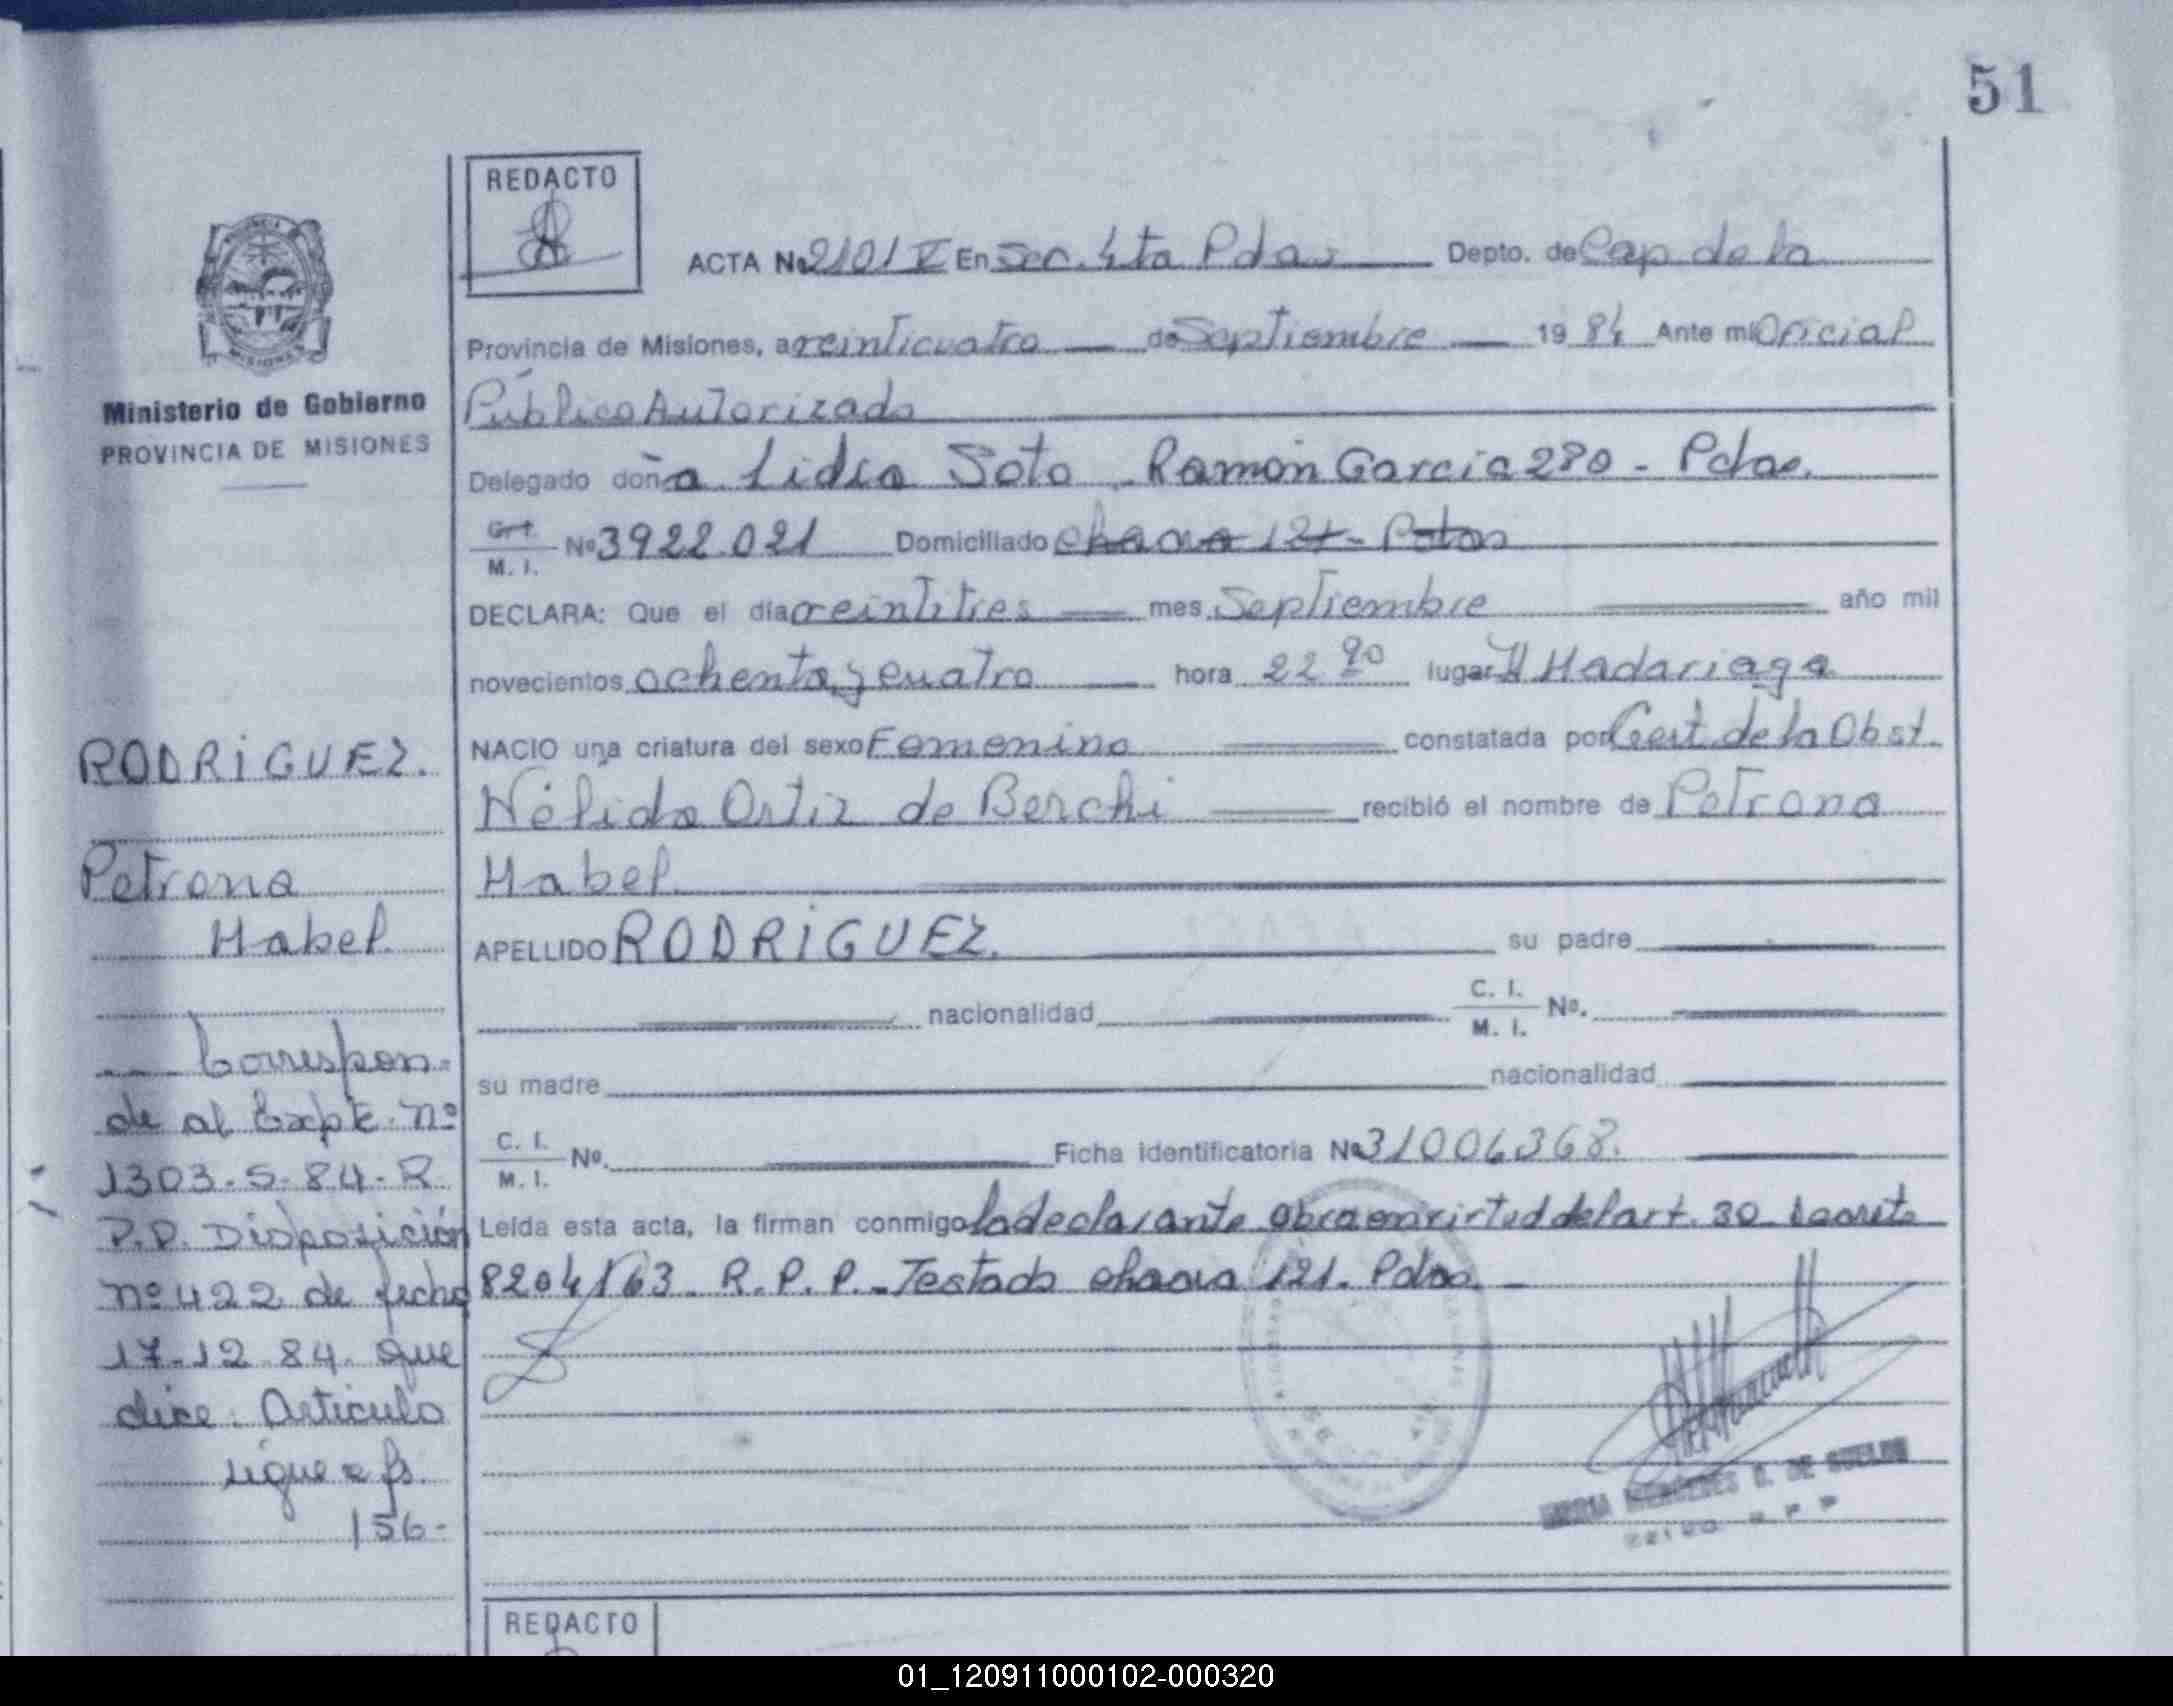 51
REDACTO
ACTA No 2101 V En Sec. 4ta Pdas Depto. de Cap de la
Provincia de Misiones, a veinticuatro de Septiembre 19 84 Ante mi Oficial
Ministerio de Gobierno
PROVINCIA DE MISIONES
Público Autorizado
Delegado doña Lidia Soto Ramón Garcia 280 - Pdas.
C.I. M. I. No 3922.021 Domiciliado chacra 121 - Pdas
DECLARA: Que el día veintitres mes Septiembre año mil
novecientos ochenta y cuatro hora 22 lugar H Madariaga
NACIO una criatura del sexo Femenino constatada por Cert. de la Obst.
Nélida Ortiz de Berchi recibió el nombre de Petrona
Mabel
APELLIDO RODRIGUEZ. su padre
nacionalidad C. I. M. I. No.
su madre nacionalidad
C. I. M. I. No. Ficha identificatoria No 31006368.
Leída esta acta, la firman conmigo la declarante obra en virtud del art. 30 decreto
8204/63 R.P.P. - Testado chacra 121. Pdas.
RODRIGUEZ.
Petrona
Mabel
Correspon-
de al Expte. nº
1303-S-84-R
P.P. Disposición
nº 422 de fecha
17-12-84. que
dice: Artículo
sigue a fs.
156-
MERCEDES DE
REDACTO
01_120911000102-000320